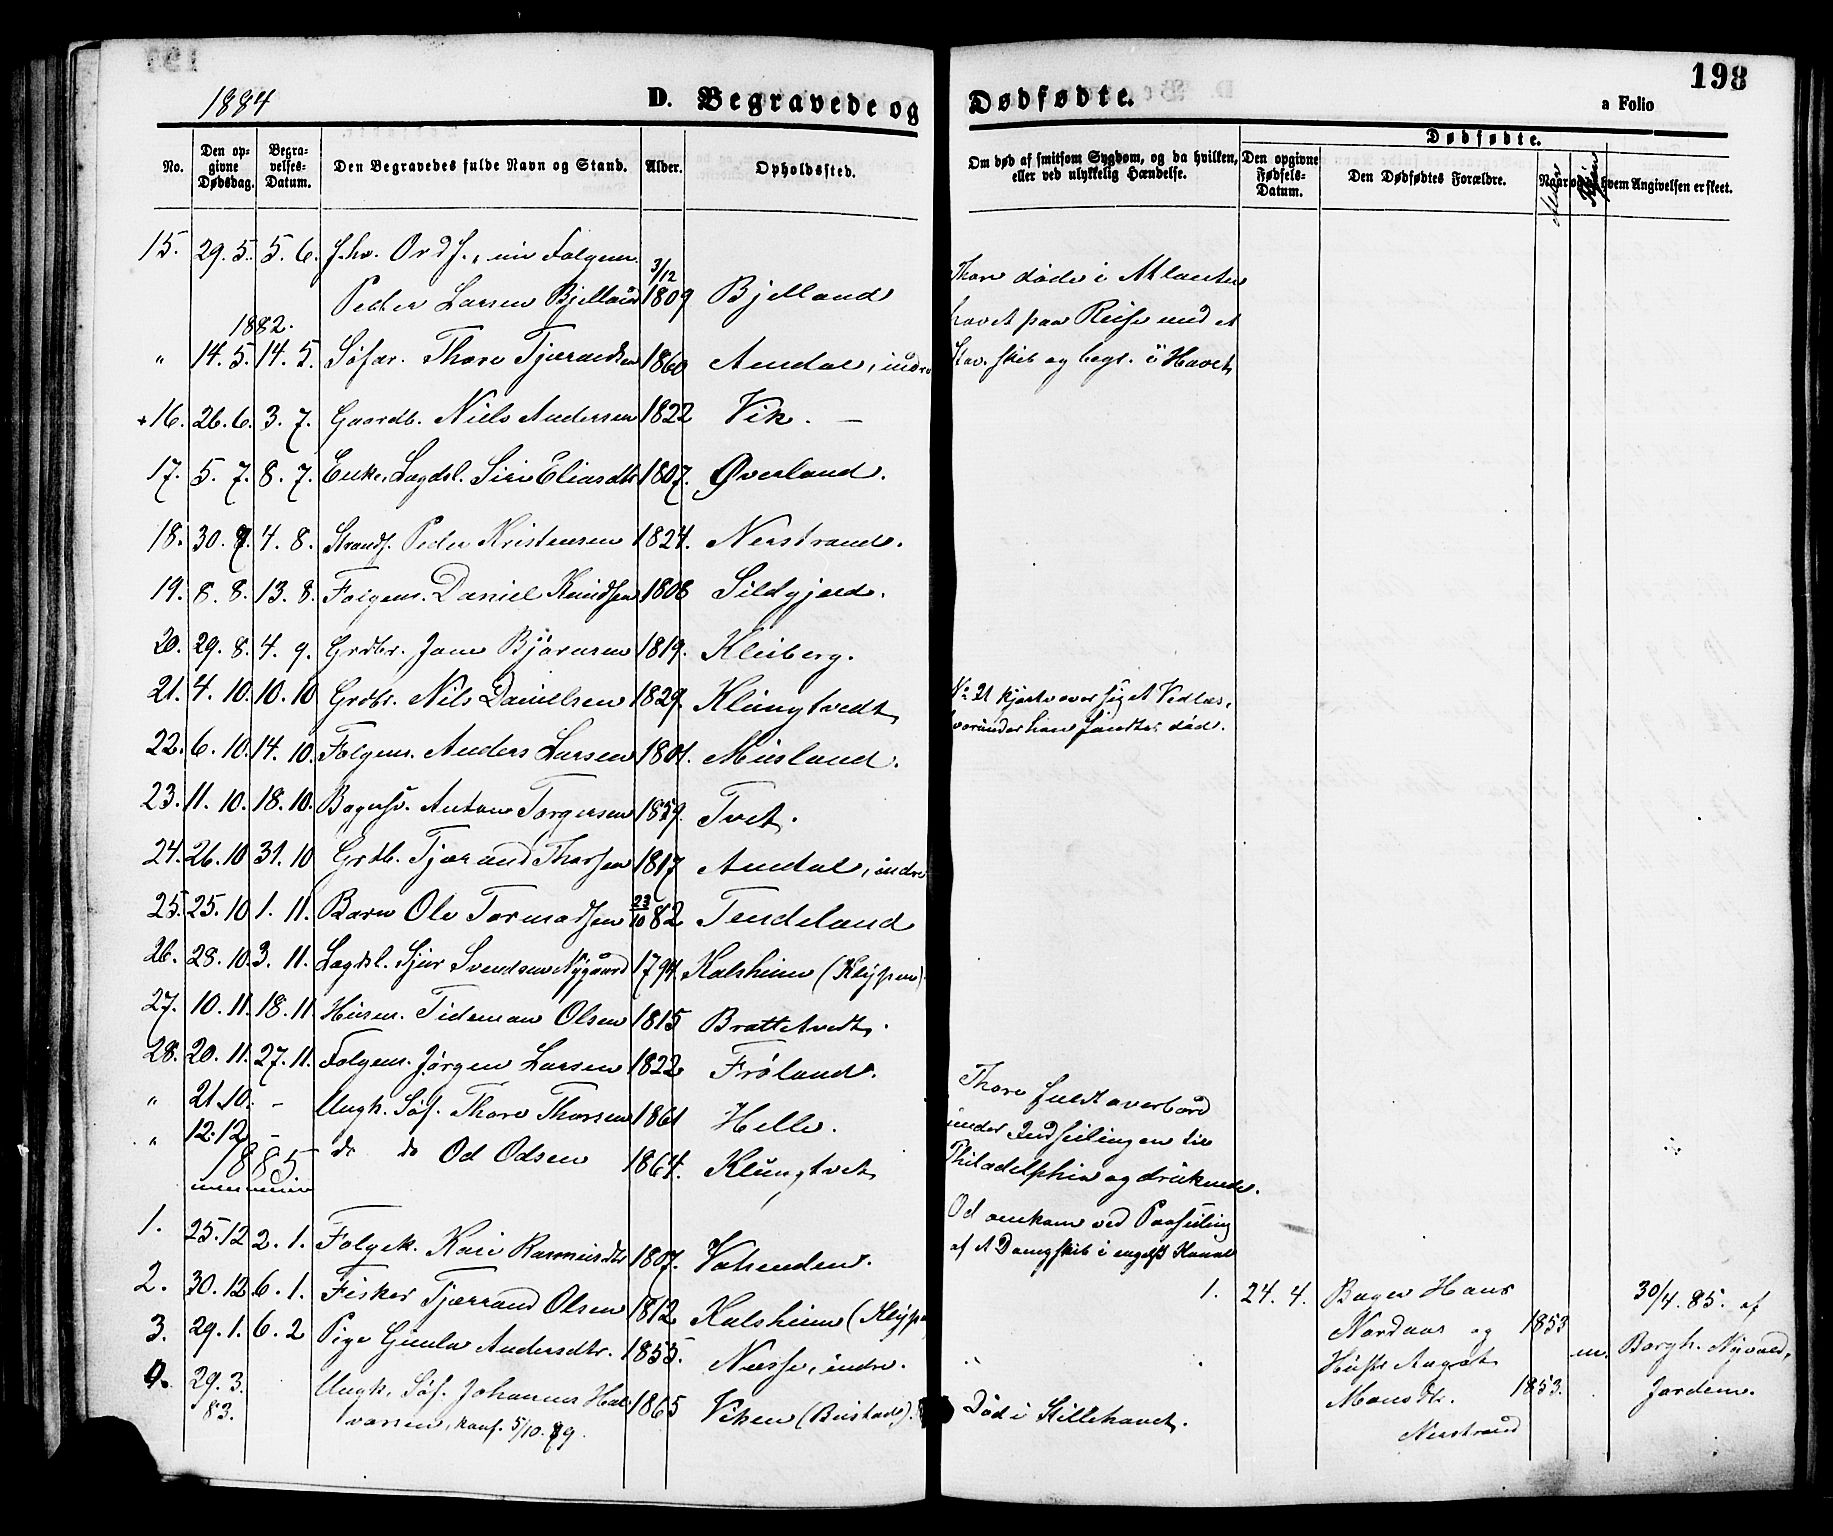 198
1884
D. Begravede og Dødfødte.
a Folio
No.
Den opgivne Dødsdag.
Begravelses-Datum.
Den Begravedes fulde Navn og Stand.
Alder.
Opholdssted.
Om død af smitsom Sygdom, og da hvilken, eller ved ulykkelig Hændelse.
Den opgivne Fødsels-Datum.
Dødfødte.
Den Dødfødtes Forældre.
Alder
Kjøn
Naar og af hvem Angivelsen er skeet.
15. 29. 5. 5. 6. f.hv. Ordf., nu Folgem.
Peder Larsen Bjelland 3/12 1809 Bjelland
1882.
" 14. 5. 14. 5. Søfar. Thore Tjerandsen 1860 Amdal, indre
Thore døde i Atlanter
havet paa Reise med et
Stav. skib og begr. i Havet
+16. 26. 6. 3. 7. Gaardb. Niels Andersen 1822 Vik. —
17. 5. 7. 8. 7. Enke, Lægdsl. Siri Eliasdtr 1807. Øverland.
18. 30. 7. 4. 8. Strands. Peder Kristensen 1824. Nerstrand.
19. 8. 8. 13. 8. Folgem. Daniel Knudsen 1808 Sildgjerd.
20. 29. 8. 4. 9. Grdbr. Jone Bjørnsen 1819. Kleiberg.
21. 4. 10. 10. 10 Grdbr. Nils Danielsen 1829. Klungtvedt
No 21 kjørte over sig et Vedlæs,
hvorunder han fandtes død.
22. 6. 10. 14. 10. Folgem. Anders Larsen 1801. Musland.
23. 11. 10. 18. 10. Bagersv. Anton Torgersen 1859. Tvet.
24. 26. 10 31. 10 Grdb. Tjerand Thorsen 1817 Amdal, indre
25. 25. 10 1. 11. Barn Ole Tormodsen 23/10 82 Tendeland
26. 28. 10. 3. 11. Lægdsl. Sjur Svendsen Nygaard 1794. Kalsheim (Kleppen).
27. 10. 11. 18. 11. Husm. Tideman Olsen 1815 Brattetvedt.
28. 20. 11. 27. 11. Folgem. Jørgen Larsen 1822 Frøland.
" 21. 10. - Ungk. Søf. Thore Thorsen 1861 Helle.
" 12. 12 - do do Od Odsen 1864. Klungtvet
Thore faldt overbord
under Indseilingen til
Philadelphia og druknede.
Od omkom ved Paaseiling
af et Dampskib i engelsk Kanal
1885
1. 25. 12 2. 1. Folgek. Kari Rasmusdtr 1807. Vatsenden.
2. 30. 12 6. 1. Fisker Tjerrand Olsen 1812 Kalsheim (Kleppe
3. 29. 1. 6. 2 Pige Gunla Andersdtr. 1855. Næsse, indre.
4. 29. 3. 83. Ungk. Søf. Johannes Hal
vorsen, konf. 5/10. 79. 1865 Viken (Bustad).
Død i Stillehavet.
1. 24. 4. Bager Hans
Nordaas og 1853
Hustr Aagot
Monsdtr. 1853.
Nerstrand
m.
30/4. 85. af
Borgh. Nyvold,
Jordem.